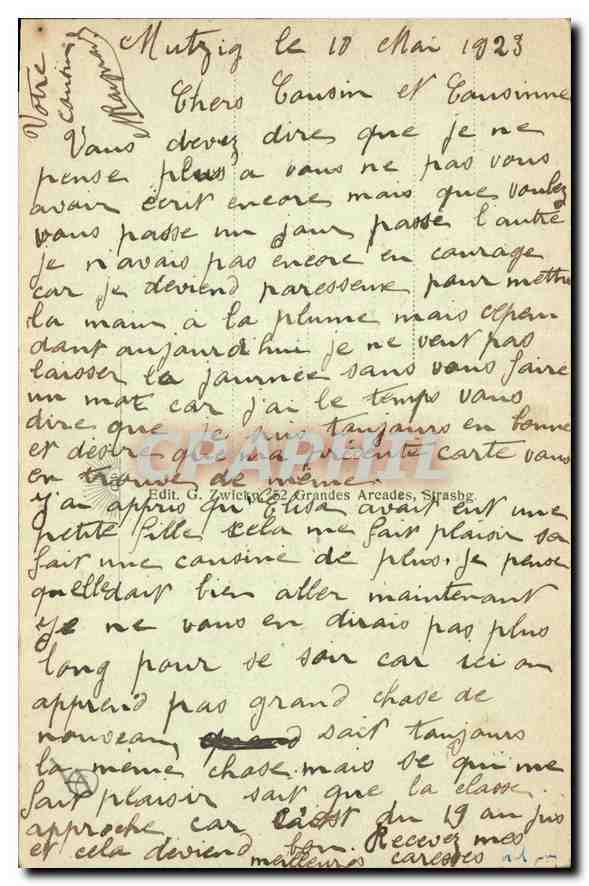 Mutzig le 10 Mai 1923
Chers Cousin et Cousinne
Vous devez dire que je ne
pense plus a vous ne pas vous
avoir écrit encore mais que voulez
vous passe un jour passe l'autre
je n'avais pas encore en courage
car je deviend paresseux pour mettre
la main a la plume mais cepen
dant aujourd'hui je ne veut pas
laisser la journee sans vous faire
un mot car j'ai le temps vous
dire que je suis toujours en bonne
et désire que ma présente carte vous
en trouve de même.
CPAPHIL
Edit. G. Zwicky, 52 Grandes Arcades, Strasbg.
j'ai appris qu'Elisa avait eut une
petite fille cela me fait plaisir sa
fait une cousine de plus. Je pense
qu'elle doit bien aller maintenant
Je ne vous en dirais pas plus
long pour se soir car ici on
apprend pas grand chose de
nouveau, sait toujours
la même chose mais se qui me
fait plaisir sait que la classe
approche car c'est du 19 au jus
et cela deviend bon. Recevez mes
meilleures caresses
Votre
cousin